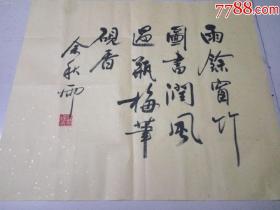 雨餘窗竹
圖書潤風
過瓶梅筆
硯香
余秋雨
7788.com